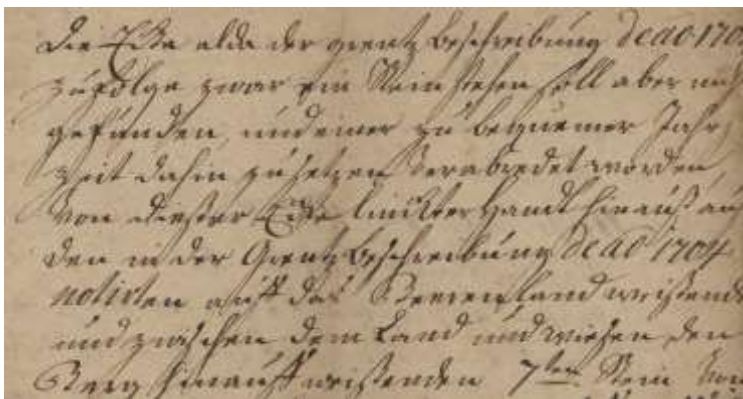 die Ecke alda der grentz beschreibung de ao 170
zufolge zwar ein Stein stehen soll aber nich
gefunden, und einer zu bequemer Jahr
Zeit dahin zu setzen verabredet worden,
von dießer Ecke lincker Handt hinauß auf
den in der Grentzbeschreibung de ao 1704
notirten auff das Herrenland weißende
und zwischen dem Land und wiesen den
Berg hinauff weißenden 7ten Stein von